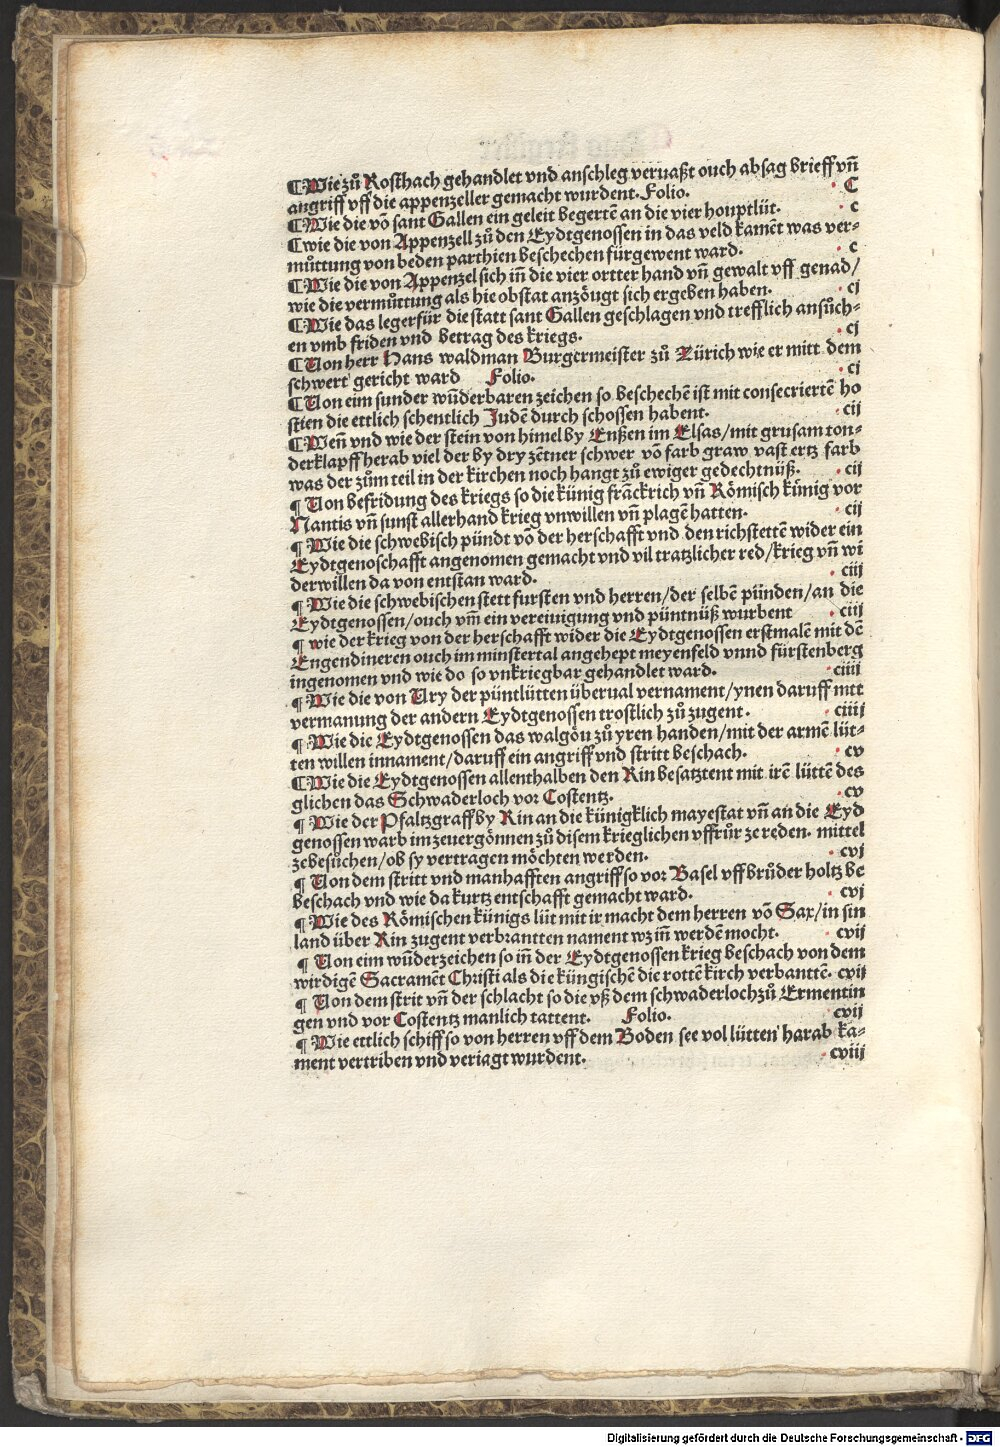 ¶Wie zů Rosthach gehandlet vnd anschleg veruaßt ouch absag brieff vn̄
angriff vff die appenzeller gemacht wurdent. Folio. · C
¶Wie die võ sant Gallen ein geleit begertẽ an die vier houptlüt. · c
¶wie die von Appenzell zů den Eydtgenossen in das veld kamẽt was ver-
můttung von beden parthien beschechen fürgewent ward. · c
¶Wie die von Appenzel sich in̄ die vier ortter hand vn̄ gewalt vff genad/
wie die vermůttung als hie obstat anzöugt sich ergeben haben. · cj
¶Wie das leger für die statt sant Gallen geschlagen vnd trefflich ansůch-
en vmb friden vnd betrag des kriegs. · cj
¶Von herr Hans waldman Burgermeister zů Zürich wie er mitt dem
schwert gericht ward Folio. · cj
¶Von eim sunder wũderbaren zeichen so beschechẽ ist mit consecriertẽ ho
stien die ettlich schentlich Judẽ durch schossen habent. · cij
¶Wen̄ vnd wie der stein von himel by Enßen im Elsas/mit grusam ton-
derklapff herab viel der by dry zẽtner schwer võ farb graw vast ertz farb
was der zům teil in der kirchen noch hangt zů ewiger gedechtnüß. · cij
¶ Von befridung des kriegs so die künig frãckrich vn̄ Römisch künig vor
Nantis vn̄ sunst allerhand krieg vnwillen vn̄ plagẽ hatten. · cij
¶ Wie die schwebisch pündt võ der herschafft vnd den richstettẽ wider ein
Eydtgenoschafft angenomen gemacht vnd vil tratzlicher red/krieg vn̄ wi
derwillen da von entstan ward. · ciij
¶ Wie die schwebischen stett fursten vnd herren/der selbẽ pünden/an die
Eydtgenossen/ouch vm̄ ein vereinigung vnd püntnüß wurbent · ciij
¶ wie der krieg von der herschafft wider die Eydtgenossen erstmalẽ mit dẽ
Engendineren ouch im minstertal angehept meyenfeld vnnd fürstenberg
ingenomen vnd wie do so vnkriegbar gehandlet ward. · ciiij
¶ Wie die von Vry der püntlütten überual vernament/ynen daruff mit
vermanung der andern Eydtgenossen trostlich zů zugent. · ciiij
¶ Wie die Eydtgenossen das walgöu zů yren handen/mit der armẽ lüt-
ten willen innament/daruff ein angriff vnd stritt beschach. · cv
¶Wie die Eydtgenossen allenthalben den Rin besatztent mit irẽ lüttẽ des
glichen das Schwaderloch vor Costentz. · cv
¶ Wie der Pfaltzgraff by Rin an die künigklich mayestat vn̄ an die Eyd
genossen warb im zeuergönnen zů disem krieglichen vffrůr ze reden. mittel
zebesůchen/ob sy vertragen möchten werden. · cvj
¶ Von dem stritt vnd manhafften angriff so vor Basel vff brůder holtz be
beschach vnd wie da kurtz entschafft gemacht ward. · cvj
¶ Wie des Römischen künigs lüt mit ir macht dem herren võ Sax/in sin
land über Rin zugent verbrantten nament wz in̄ werdẽ mocht. · cvij
¶ Von eim wũderzeichen so in̄ der Eydtgenossen krieg beschach von dem
wirdigẽ Sacramẽt Christi als die küngischẽ die rottẽ kirch verbanttẽ. cvij
¶ Von dem strit vn̄ der schlacht so die vß dem schwaderloch zů Ermentin
gen vnd vor Costentz manlich tattent. Folio. cvij
¶ Wie ettlich schiff so von herren vff dem Boden see vol lütten harab ka-
ment vertriben vnd veriagt wurdent. · cviij
Digitalisierung gefördert durch die Deutsche Forschungsgemeinschaft - DFG